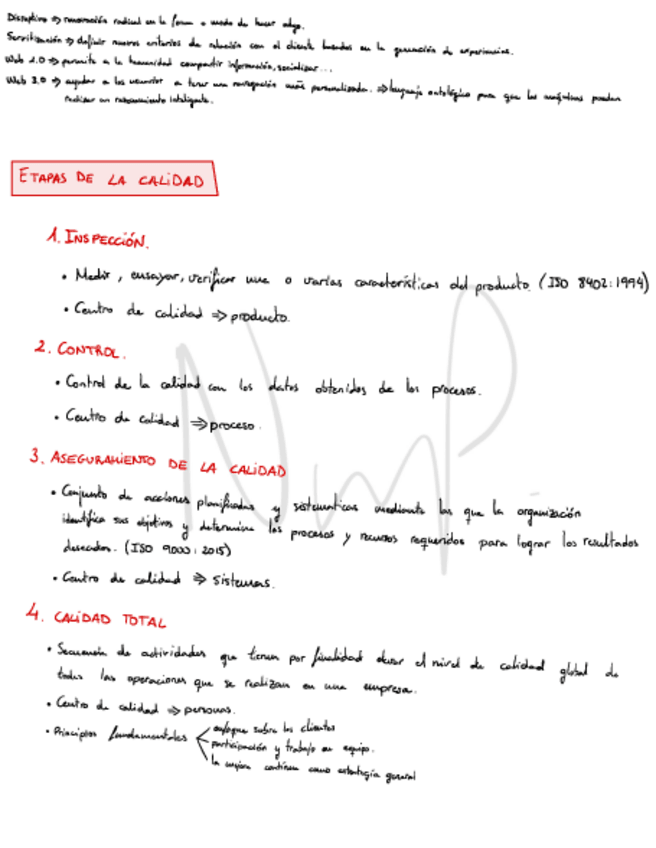 Disruptivo => renovación radical en la forma o modo de hacer algo.
Servitización => definir nuevos criterios de relación con el cliente basados en la generación de experiencias.
Web 2.0 => permite a la humanidad compartir información, socializar...
Web 3.0 => ayudar a los usuarios a tener una navegación más personalizada. => lenguaje ontológico para que las máquinas puedan
realizar un razonamiento inteligente.
ETAPAS DE LA CALIDAD
1. INSPECCIÓN.
• Medir, ensayar, verificar una o varias características del producto. (ISO 8402:1994)
• Centro de calidad => producto.
2. CONTROL.
• Control de la calidad con los datos obtenidos de los procesos.
• Centro de calidad => proceso.
3. ASEGURAMIENTO DE LA CALIDAD
• Conjunto de acciones planificadas y sistematicas mediante las que la organización
identifica sus objetivos y determina los procesos y recursos requeridos para lograr los resultados
deseados. (ISO 9000:2015)
• Centro de calidad => sistemas.
4. CALIDAD TOTAL
• Secuencia de actividades que tienen por finalidad elevar el nivel de calidad global de
todas las operaciones que se realizan en una empresa.
• Centro de calidad => personas.
• Principios fundamentales < enfoque sobre los clientes
participación y trabajo en equipo.
la mejora continua como estrategia general